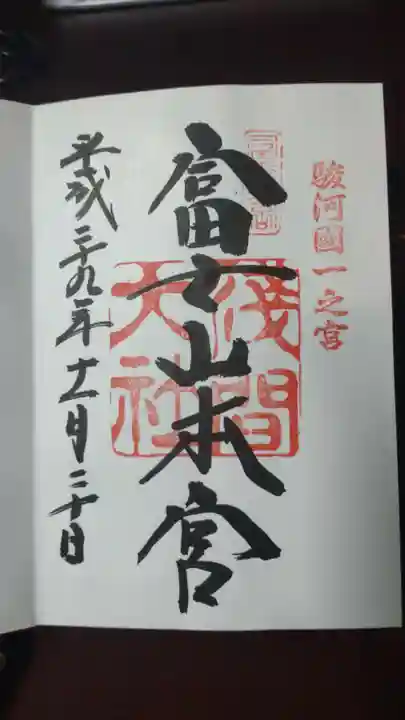 駿河國一之宮
富士山本宮
淺間大社
平成二十九年十一月二十日